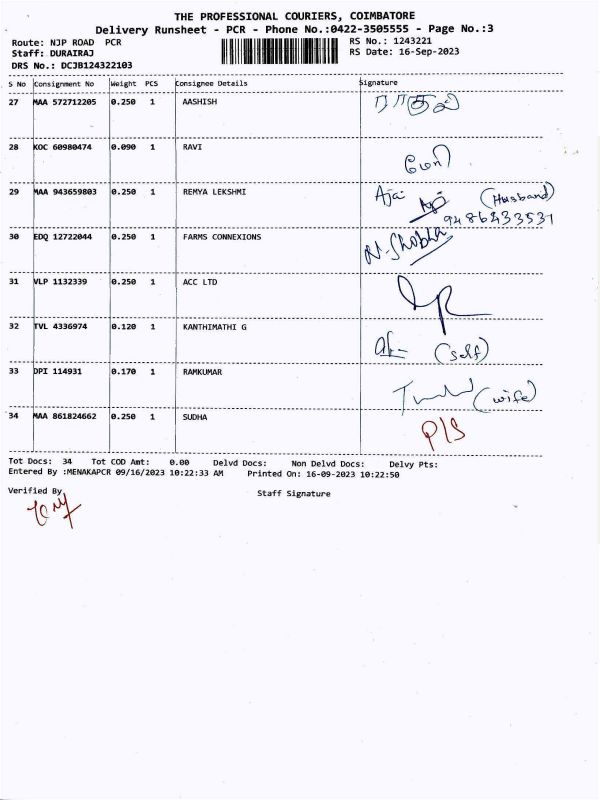 THE PROFESSIONAL COURIERS, COIMBATORE
Delivery Runsheet - PCR - Phone No.:0422-3505555 - Page No.:3
Route: NJP ROAD PCR RS No.: 1243221
Staff: DURAIRAJ RS Date: 16-Sep-2023
DRS No.: DCJB124322103
S No Consignment No Weight PCS Consignee Details Signature
27 MAA 572712205 0.250 1 AASHISH ராகுல்
28 KOC 60980474 0.090 1 RAVI
29 MAA 943659803 0.250 1 REMYA LEKSHMI Ajai (Husband)
9486433531
30 EDQ 12722044 0.250 1 FARMS CONNEXIONS N. Shobha
31 VLP 1132339 0.250 1 ACC LTD
32 TVL 4336974 0.120 1 KANTHIMATHI G (self)
33 DPI 114931 0.170 1 RAMKUMAR (wife)
34 MAA 861824662 0.250 1 SUDHA P/S
Tot Docs: 34 Tot COD Amt: 0.00 Delvd Docs: Non Delvd Docs: Delvy Pts:
Entered By :MENAKAPCR 09/16/2023 10:22:33 AM Printed On: 16-09-2023 10:22:50
Verified By Staff Signature